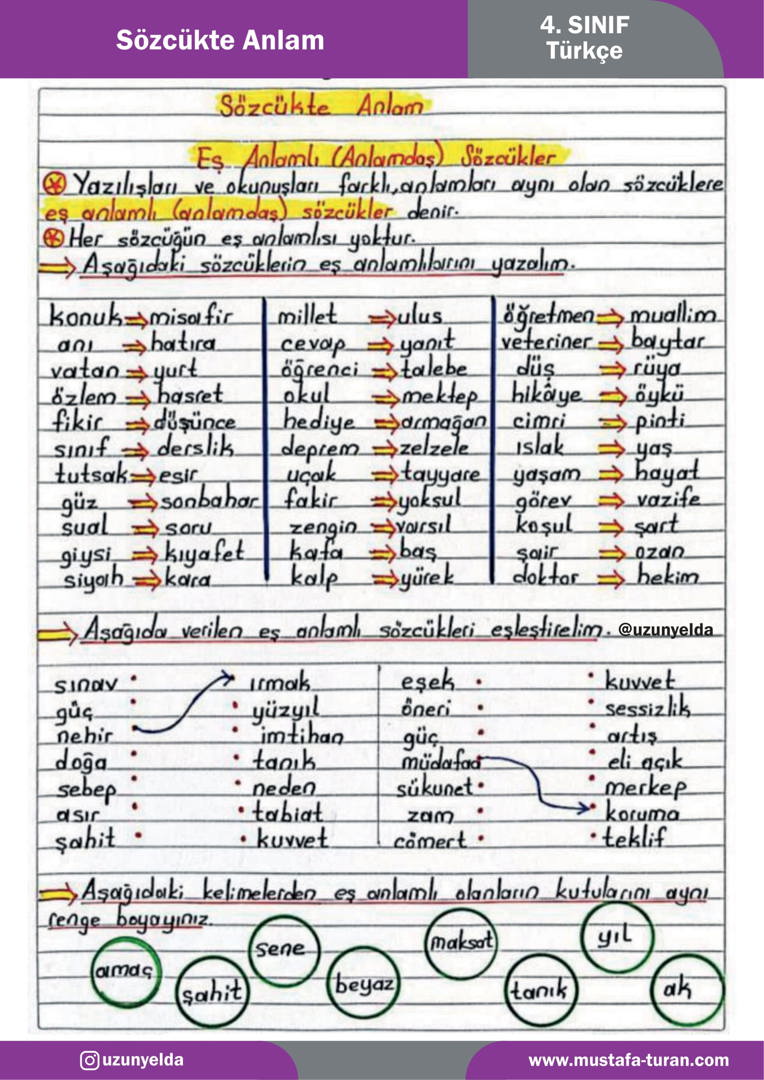 Sözcükte Anlam
4. SINIF
Türkçe
Sözcükte Anlam
Eş Anlamlı (Anlamdaş) Sözcükler
Yazılışları ve okunuşları farklı, anlamları aynı olan sözcüklere
eş anlamlı (anlamdaş) sözcükler denir.
Her sözcüğün eş anlamlısı yoktur.
Aşağıdaki sözcüklerin eş anlamlılarını yazalım.
konuk misafir
anı hatıra
vatan yurt
özlem hasret
fikir düşünce
sınıf derslik
tutsak esir
güz sonbahar
sual soru
giysi kıyafet
siyah kara
millet ulus
cevap yanıt
öğrenci talebe
okul mektep
hediye armağan
deprem zelzele
uçak tayyare
fakir yoksul
zengin varsıl
kafa baş
kalp yürek
öğretmen muallim
veteriner baytar
düş rüya
hikâye öykü
cimri pinti
ıslak yaş
yaşam hayat
görev vazife
koşul şart
şair ozan
doktor hekim
Aşağıda verilen eş anlamlı sözcükleri eşleştirelim. @uzunyelda
sınav ırmak
güç yüzyıl
nehir imtihan
doğa tanık
sebep neden
asır tabiat
şahit kuvvet
eşek kuvvet
öneri sessizlik
güç artış
müdafaa eli açık
sükunet merkep
zam koruma
cömert teklif
Aşağıdaki kelimelerden eş anlamlı olanların kutularını aynı
renge boyayınız.
amaç
şahit
sene
beyaz
maksat
tanık
yıl
ak
uzunyelda
www.mustafa-turan.com